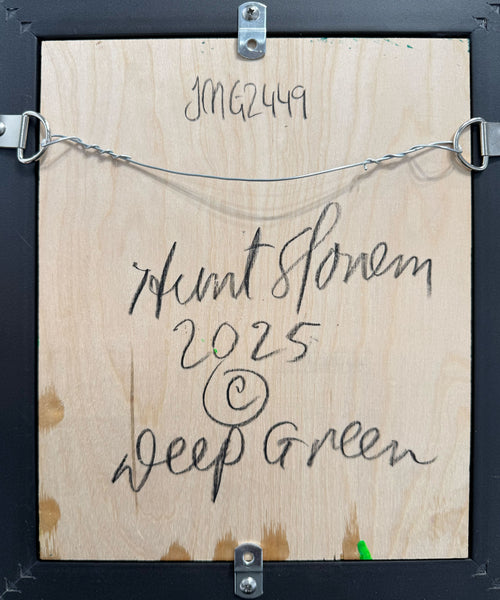 JMG2449
Hunt Slonem
2025
©
Deep Green